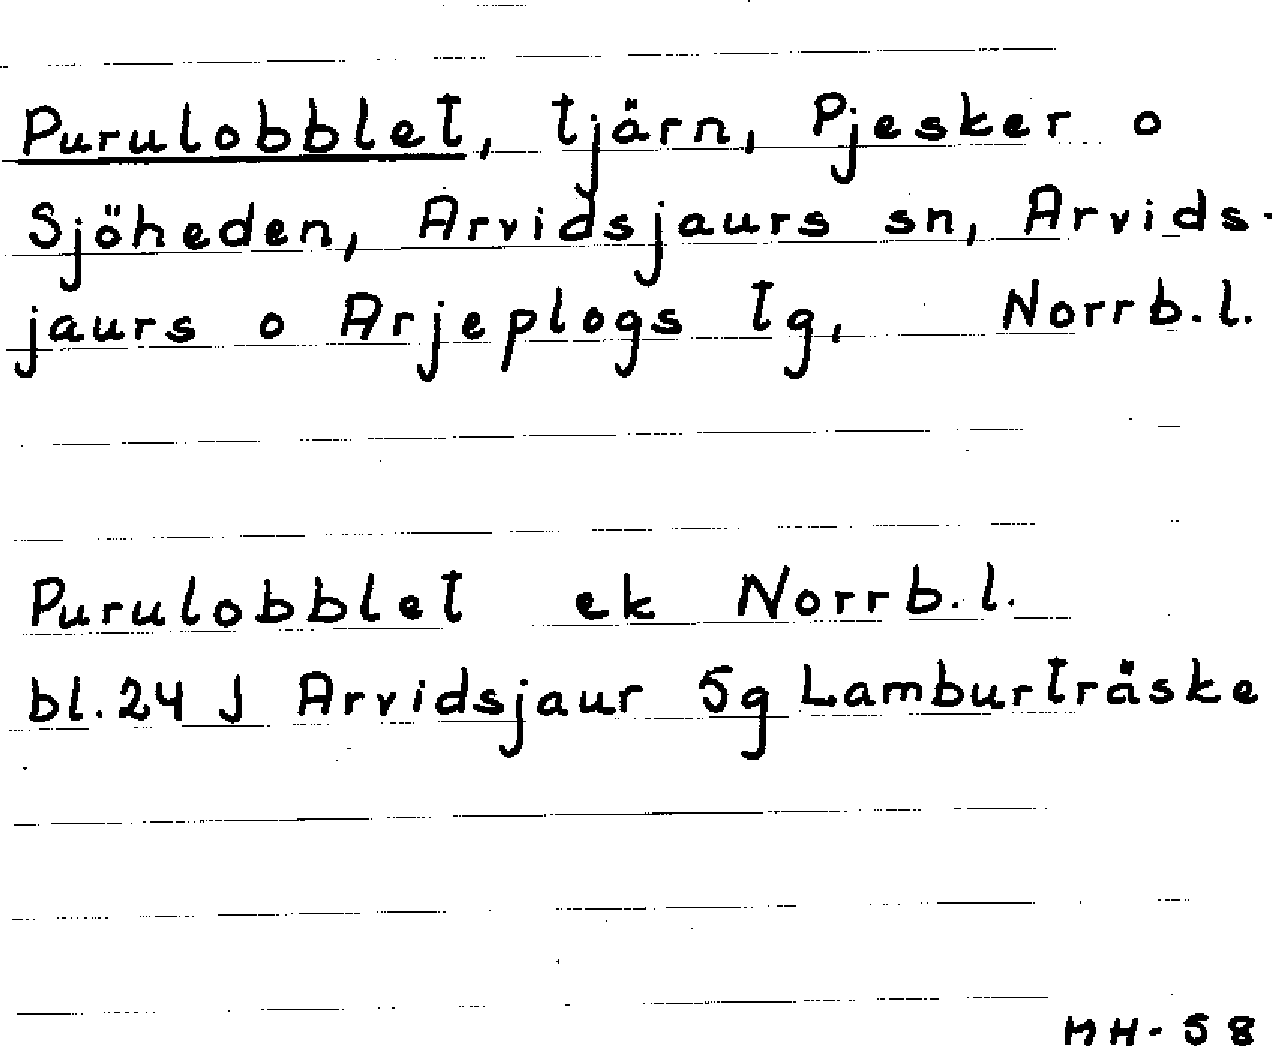 Purulobblet, tjärn, Pjesker o
Sjöheden, Arvidsjaurs sn, Arvids-
jaurs o Arjeplogs tg, Norrb.l.
Purulobblet ek Norrb.l.
bl. 24 J Arvidsjaur 5g Lamburträske
MH-58